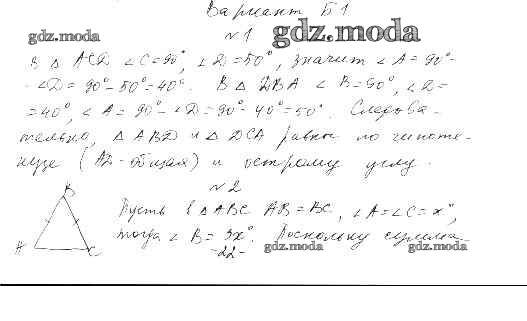 Вариант Б1
gdz.moda
№1
gdz.moda
В △ ACD ∠C=90°, ∠D=50°, значит ∠A=90°-
-∠D=90°-50°=40°. В △ DBA ∠B=90°, ∠D=
=40°, ∠A=90°-∠D=90°-40°=50°. Следова-
тельно, △ABD и △DCA равны по гипоте-
нузе (AD-общая) и острому углу.
№2
B
Пусть в △ABC AB=BC, ∠A=∠C=x°,
A
C
тогда ∠B=3x°. Поскольку сумма
gdz.moda
gdz.moda
-22-